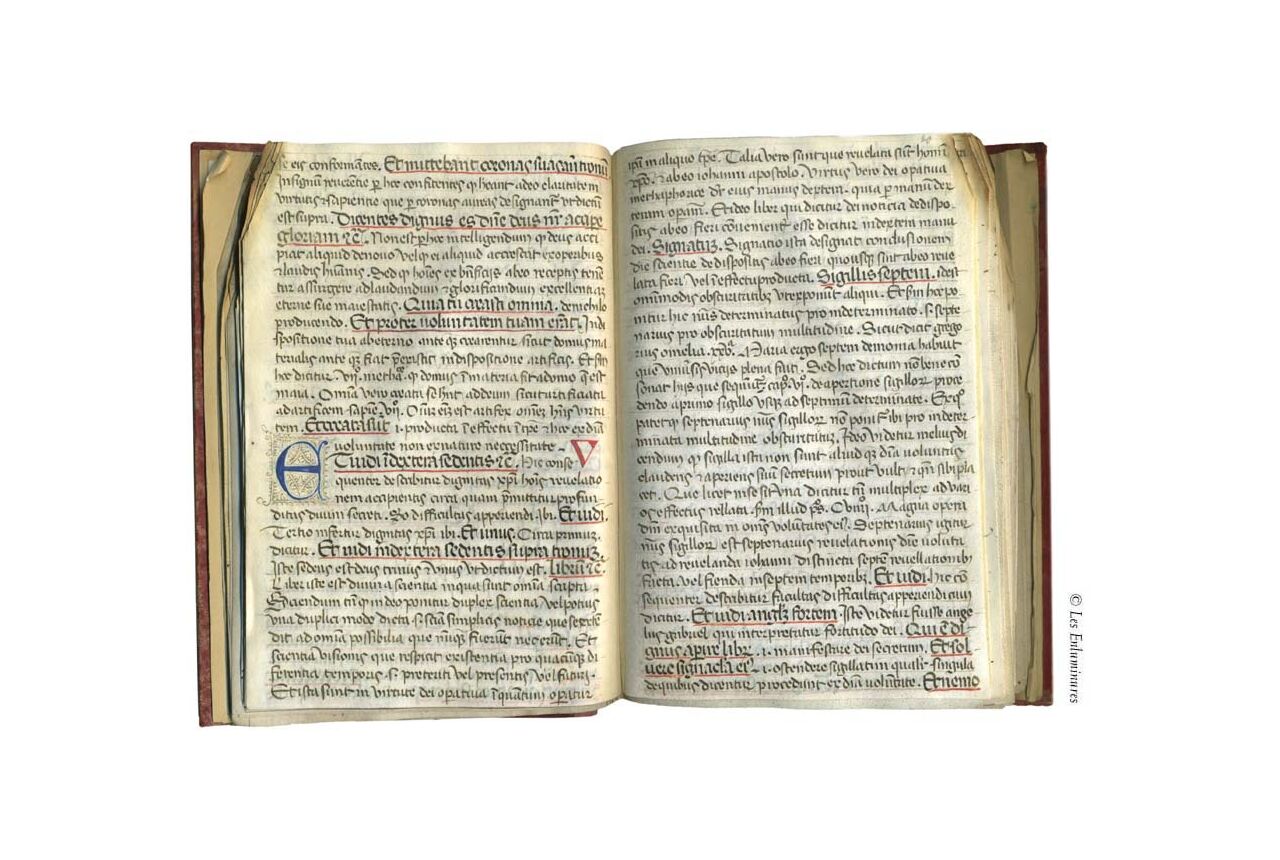 se eis conformantes. Et mittebant coronas suas an̄ tronū
in signum reuerentie per hec confitentes
virtutis et sapientie que per coronas aureas designant̄ vt dictum
est supra. Dicentes dignus es dn̄e deus nr̄ accipe
gloriam ⁊c̄. Non est per hec intelligendum quod deus acci
piat aliquid de nouo vel quod ei aliquid accrescat ex operibus
et laudis humanis. Sed quod
tur assurgere ad laudandum et glorificandum excellentiam
eterne sue maiestatis. Quia tu creasti omnia. de nichilo
producendo. Et propter uoluntatem tuam erāt. In di
spositione tua ab eterno ante quam crearentur sicut domus ma
terialis ante quam fiat in dispositione artificis. Et sic
hec dicitur domus in materia fit a domo que est
Omnia vero creata se hn̄t ad deum sicut artificiata
ad artificem
tem. Et creata sūt .i. producta in effectu
uoluntate non ex nature necessitate.
Et uidi in dextera sedentis ⁊c̄. Hic conse V
quenter describitur dignitas xp̄i
nem accipientis circa quam premittitur profun
ditas diuini secreti. ibi. Et uidi.
Tertio infertur dignitas xp̄i ibi. Et unus. Circa primum
dicitur. Et uidi in dextera sedentis supra tronum.
Iste sedens est deus trinus et vnus vt dictum est. librū ⁊c̄.
Liber iste est diuina scientia in qua sunt om̄ia scripta.
Sciendum in deo ponitur duplex scientia vel potius
vna duplici modo dicta .s. scientia simplicis noticie que se exten
dit ad omnia possibilia que nunquam fuerunt nec erunt. Et
scientia visionis que respicit existentia pro quacumque di
ferentia temporis .s. preteriti vel presentis vel futuri.
Et ista sunt in virtute dei operatiua in quantum operatur
ipsam in aliquo tp̄e. Talia vero sunt que reuelata sūt
xp̄o. et ab eo iohanni apostolo. Virtus vero dei operatiua
methaphorice dr̄ eius manus dextera. quia per manum dex
teram operam̄. Et ideo liber qui dicitur dei noticia de dispo
sitis ab eo fieri conuenienter esse dicitur in dextera manu
dei. Signatum. Signatio ista designat conclusionem
diuine scientie de dispositis ab eo fieri quousque sint ab eo reue
lata fieri vel in effectu producta. Sigillis septem. idest
omnimodis obscuritatibus vt exponunt aliqui. Et secundum hec po
nitur hic numerus determinatus pro indeterminato .s. septe
narius pro obscuritatum multitudine. Sicut dicit grego
rius omelia. Maria ergo septem demonia habuit
que vniuersis vicijs plena fuit. Sed hec dictum non bene con
sonat hijs que sequuntur capo. vi. de apertione sigillorum proce
dendo a primo sigillo vsque ad septimum determinate. Ex quo
patet quod septenarius numerus sigillorum non ponitur ibi pro indeter
minata multitudine obscuritatum. Ideo videtur melius di
cendum quod sigilla ista non sunt aliud quam diuina voluntas
claudens et aperiens suum secretum prout vult et quando sibi pla
cet. Que licet in se sit vna dicitur tamen multiplex ad vari
os effectus rellata. Magna opera
domini exquisita in omnes voluntates eius. Septenarius igitur
numerus sigillorum est septenarius reuelationis diuine volunta
tis ad reuelanda iohanni distincta septem reuellationibus
facta vel fienda in septem temporibus. Et uidi. hic con
sequenter describitur facultas difficultas apperiendi cum
dicitur. Et uidi angelum fortem. iste videtur fuisse ange
lus gabriel qui interpretatur fortitudo dei. Qui ē di
gnus aperire librū .i. manifestare dei secretum. Et sol
uere signacula eius .i. ostendere sigillatim qualiter singula
de quibus dicentur procedunt ex diuina voluntate. Et nemo
© Les Enluminures